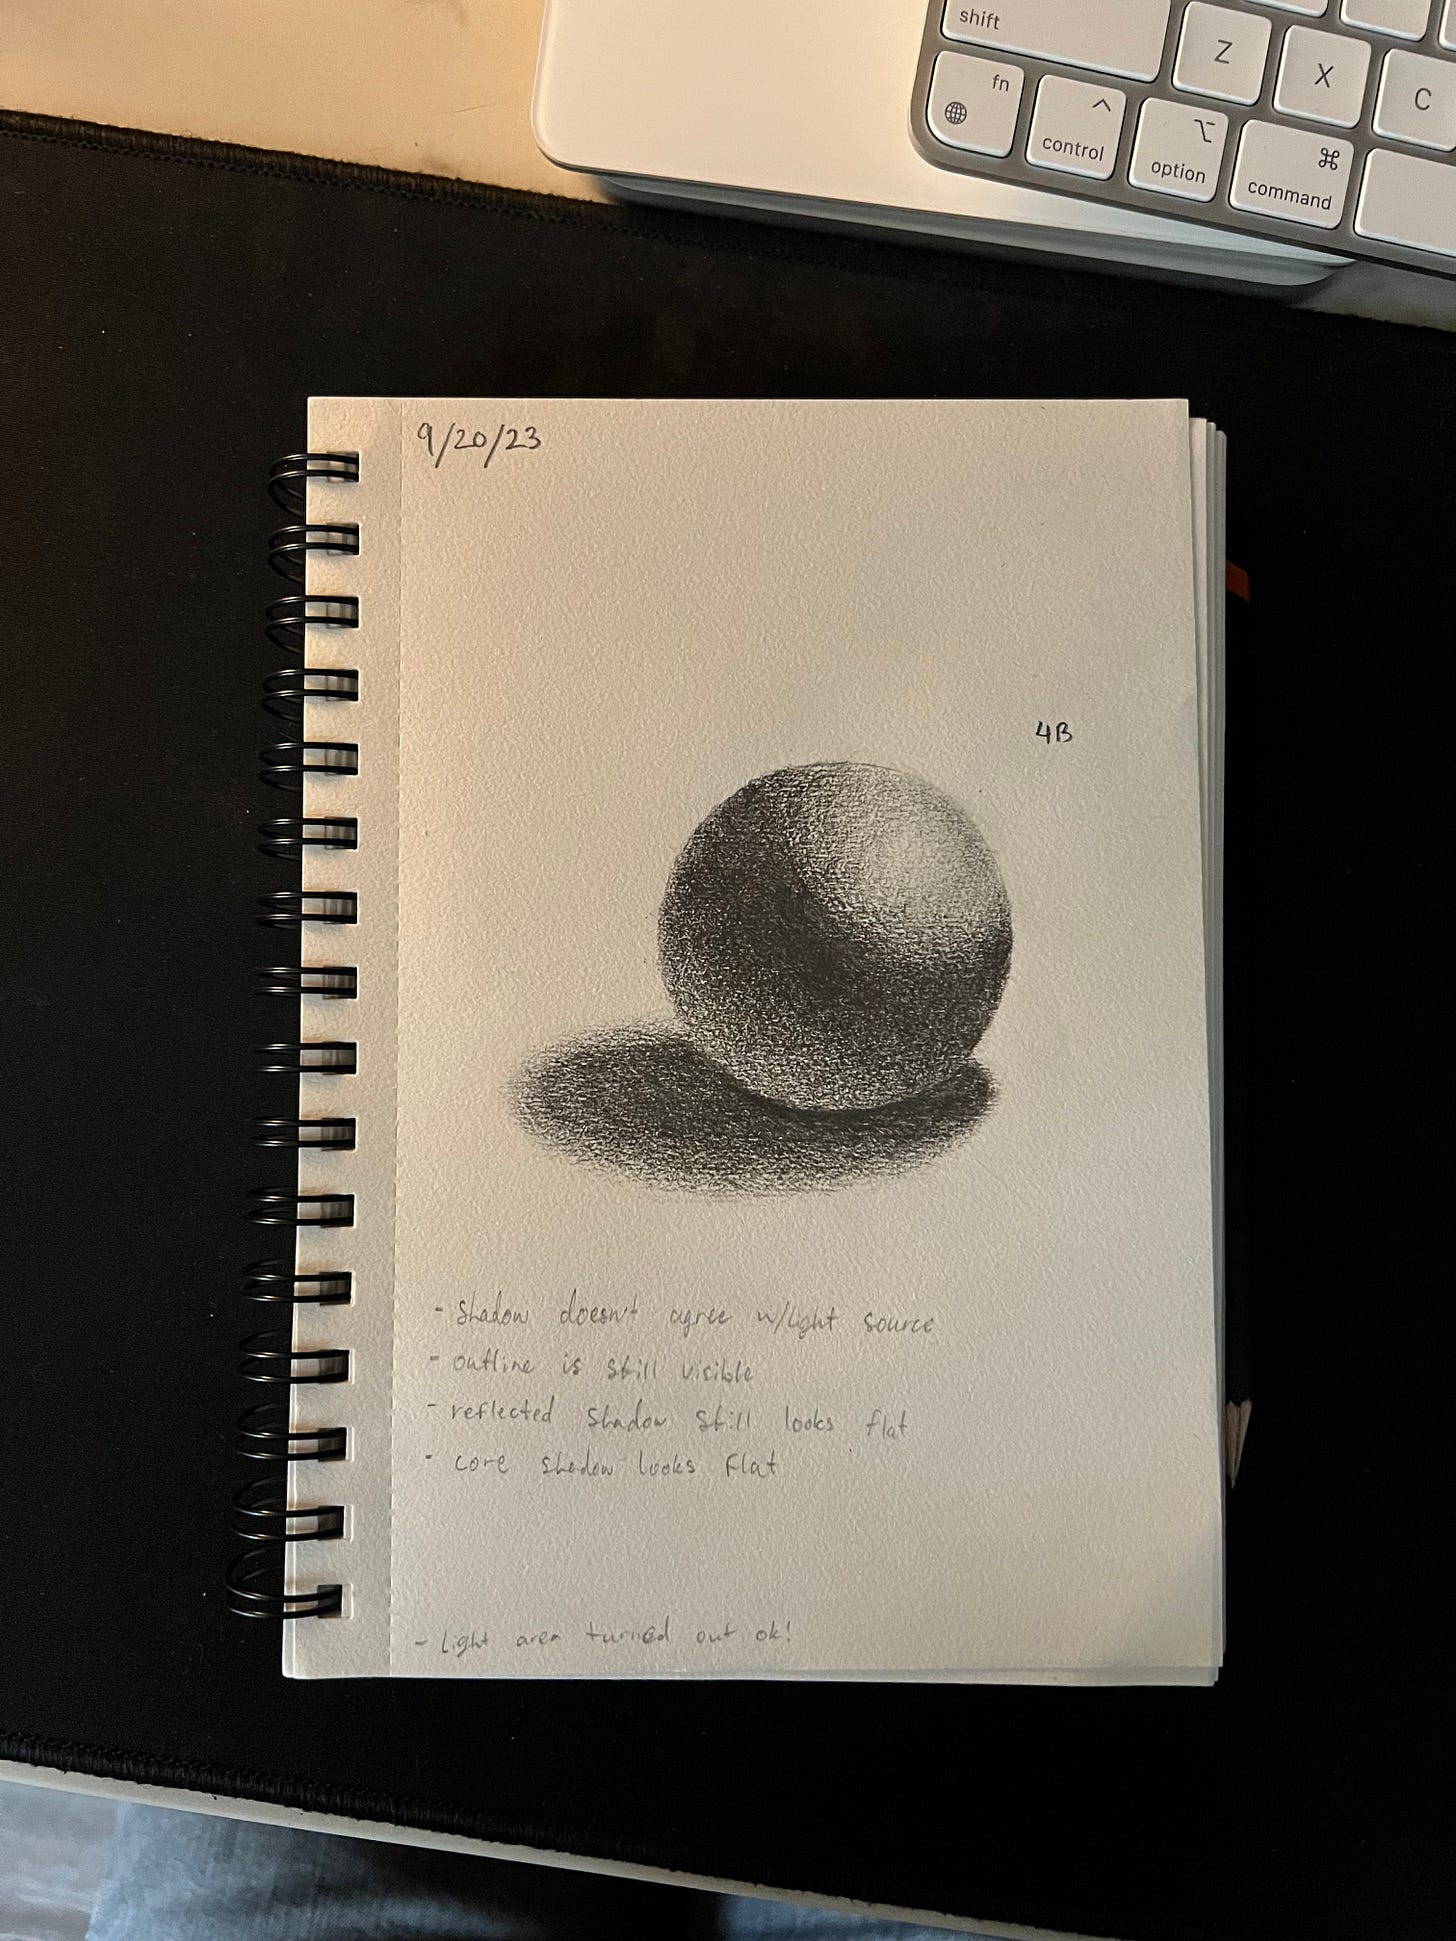 shift
Z
X
C
fn
control
option
⌘
command
9/20/23
4B
- Shadow doesn't agree w/light source
- outline is still visible
- reflected shadow still looks flat
- core shadow looks flat
- light area turned out ok!